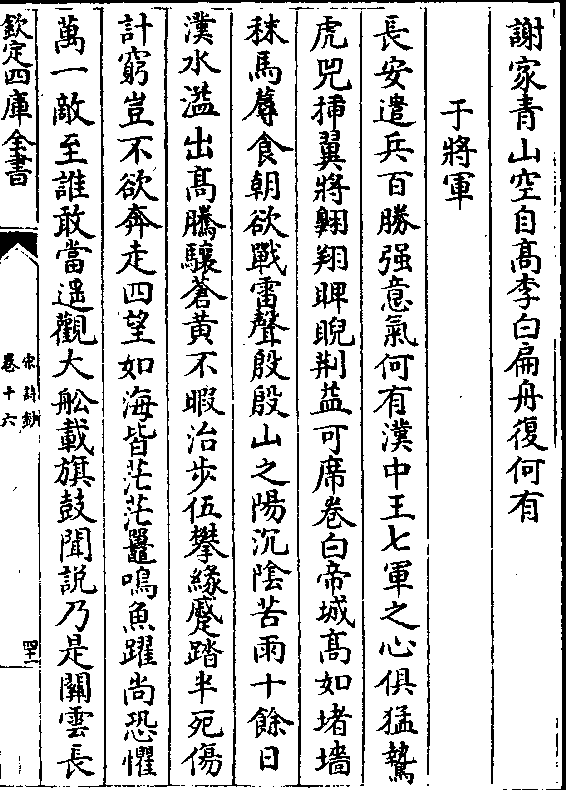 謝家青山空自髙李白扁舟復何有
于將軍
長安遣兵百勝强意氣何有漢中王七軍之心俱猛鷙
虎兕揷翼將翺翔睥睨荆益可席卷白帝城髙如堵墻
秣馬蓐食朝欲戰雷聲殷殷山之陽沉陰苦雨十餘日
漢水溢出髙騰驤蒼黄不暇治步伍攀緣蹙踏半死傷
計窮豈不欲奔走四望如海皆茫茫鼉鳴魚躍尚恐懼
萬一敵至誰敢當遥觀大舩載旗鼓聞說乃是關雲長
欽定四庫全書
宋詩鈔
卷十六